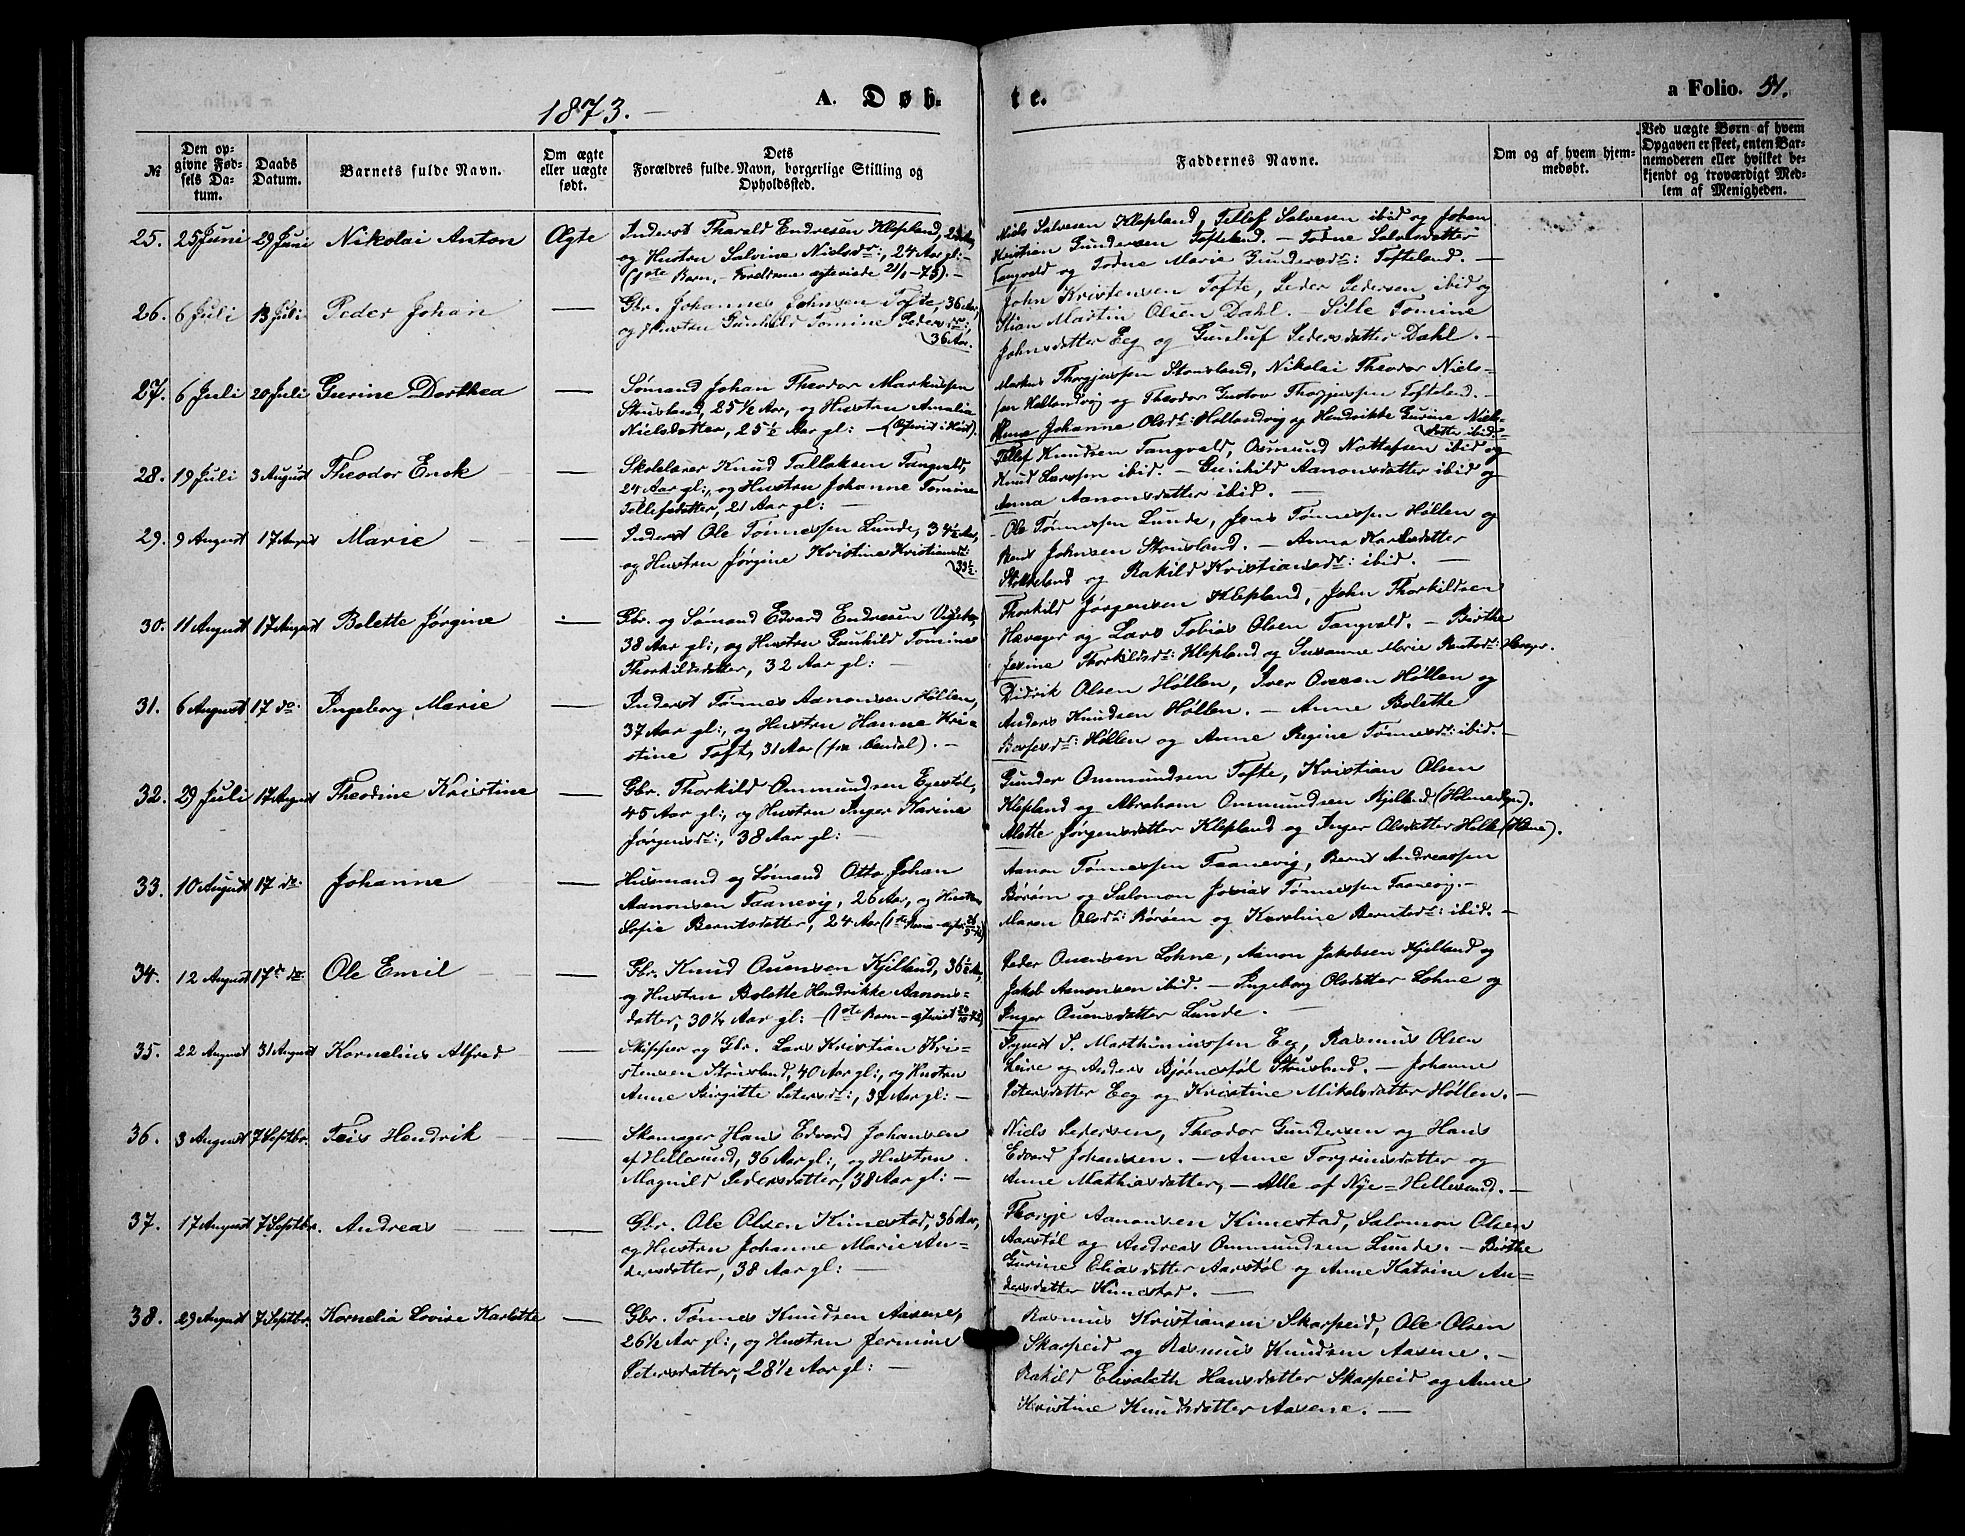 1873.
A. Døb-
te.
a Folio. 51.
№
Den op-
givne Fød-
sels Da-
tum.
Daabs
Datum.
Barnets fulde Navn.
Om ægte
eller uægte
født.
Dets
Forældres fulde Navn, borgerlige Stilling og
Opholdssted.
Faddernes Navne.
Om og af hvem hjem-
medøbt.
Ved uægte Børn af hvem
Opgaven er skeet, enten Bar-
nemoderen eller hvilket be-
kjendt og troværdigt Med-
lem af Menigheden.
25. 25 Juni 29 Juni Nikolai Anton Ægte
Inderst Tharald Endresen Klepland,
og Hustru Salvine Nielsdr:, 24 Aar gl:-
(1ste Barn, - Forældrene egteviede 2/1-73). -
Niels Salvesen Klepland, Tellef Salvesen ibid og Johan
Kristian Gundersen Tofteland. - Todne Salvesdatter
Tangvald og Todne Marie Gundersdr: Tofteland. -
26. 6 Juli 13 Juli Peder Johan —
Gbr. Johannes Johnsen Tofte, 36 Aar,
og Hustru Gunhild Tomine Pedersdr:,
36 Aar.
John Kristensen Tofte, Peder Pedersen ibid og
Stian Martin Olsen Dahl. - Sille Tomine
Johnsdatter Eeg og Gunluf Pedersdatter Dahl. -
27. 6 Juli 20 Juli Gurine Dorthea —
Sømand Johan Theodor Markussen
Stousland, 25 1/2 Aar, og Hustru Amalia
Nielsdatter, 25 1/2 Aar gl: -
Markus Thorgjussen Stousland, Nikolai Theodor Niels-
sen Hellandvig og Theodor Gustav Thorgjussen Tofteland. -
Anna Johanne Olsdr: Hollandvig og Hendrikke Gurine Niels-
datter ibid. -
28. 19 Juli 3 August Theodor Enok —
Skolelærer Knud Tallaksen Tangvald,
24 Aar gl:, og Hustru Johanne Tomine
Tellefsdatter, 21 Aar gl: -
Tellef Knudsen Tangvald, Osmund Nottofsen ibid og
Knud Larssen ibid. - Gunhild Aanonsdatter ibid og
Anna Aanonsdatter ibid. -
29. 9 August 17 August Marie —
Inderst Ole Tønnessen Lunde, 34 1/2 Aar,
og Hustru Jørgine Kristine Kristiansdr:
33 1/2.
Ole Tønnessen Lunde, Jens Tønnessen Høllen og
Bent Johnsen Stousland. - Anna Karlsdatter
Stokkeland og Rakild Kristiansdr: ibid. -
30. 11 August 17 August Bolette Jørgine —
Gbr. og Sømand Edvard Endresen
38 Aar gl:, og Hustru Gunhild Tomine
Thorkildsdatter, 32 Aar gl: -
Thorkild Jørgensen Klepland, John Thorkildsen
Havager og Lars Tobias Olsen Tangvald. - Birthe
Jesine Thorkildsdr: Klepland og Susanne Marie
31. 6 August 17 do. Ingeborg Marie —
Inderst Tønnes Aanonsen Høllen,
37 Aar gl:, og Hustru Hanne Kri-
stine Toft, 31 Aar (fra Arendal). -
Didrik Olsen Høllen, Iver Ovesen Høllen og
Anders Knudsen Høllen. - Anne Bolette
Høllen og Anne Regine Tønnesdr: ibid. -
32. 29 Juli 17 August Theodine Kristine —
Gbr. Thorkild Ommundsen Egestøl,
45 Aar gl:, og Hustru Inger Karine
Jørgensdr:, 38 Aar gl: -
Gunder Ommundsen Tofte, Kristian Olsen
Klepland og Abraham Ommundsen Kjelland (Holme Sogn).
Mette Jørgensdatter Klepland og Inger Olsdatter Helle
33. 10 August 17 do. Johanne —
Husmand og Sømand Otto Johan
Aanonsen Taanevig, 26 Aar, og Hustru
Sofie Berntsdatter, 24 Aar
Aanon Tønnessen Taanevig, Bernt Andreassen
Børøen og Salomon Josias Tønnessen Taanevig. -
Maren Olsdr: Børøen og Karoline Berntsdr: ibid. -
34. 12 August 17 do. Ole Emil —
Gbr. Knud Ouensen Kjelland, 36 1/2 Aar,
og Hustru Bolette Hendrikke Aanons-
datter, 30 1/4 Aar gl: -
Peder Ouensen Lohne, Aanon Jakobsen Kjelland og
Jakob Aanonsen ibid. - Ingeborg Olsdatter Lohne og
Inger Ouensdatter Lunde. -
35. 22 August 31 August Kornelius Alfred —
Skipper og Gbr. Lars Kristian Kri-
stensen Stousland, 40 Aar gl:, og Hustru
Anne Birgitte Petersdr:, 37 Aar gl: -
Syvert S. Marthiniussen Eeg, Rasmus Olsen
Leire og Anders Bjørnestøl Stousland. - Johanne
Petersdatter Eeg og Kristine Mikelsdatter Høllen. -
36. 3 August 7 Septbr. Teis Hendrik —
Skomager Hans Edvard Johansen
af Hellesund, 36 Aar gl:, og Hustru
Magnild Pedersdatter, 38 Aar gl: -
Niels Pedersen, Theodor Gundersen og Hans
Edvard Johansen. - Anne Torgrimsdatter og
Anne Mathiasdatter, - Alle af Nye=Hellesund. -
37. 17 August 7 Septbr. Andreas —
Gbr. Ole Olsen Kimestad, 36 Aar,
og Hustru Johanne Marie An-
dersdatter, 38 Aar gl: -
Thorgje Aanonsen Kimestad, Salomon Olsen
Aarstøl og Andreas Ommundsen Lunde. - Birthe
Gurine Eliasdatter Aarstøl og Anne Katrine An-
dersdatter Kimestad. -
38. 29 August 7 Septbr. Kornelia Lovise Karlotte —
Gbr. Tønnes Knudsen Aasene,
26 1/2 Aar gl:, og Hustru Jermine
Petersdatter, 28 1/2 Aar gl: -
Rasmus Kristiansen Skarpeid, Ole Olsen
Skarpeid og Rasmus Knudsen Aasene. -
Rakild Elisabeth Hansdatter Skarpeid og Anne
Kristine Knudsdatter Aasene. -